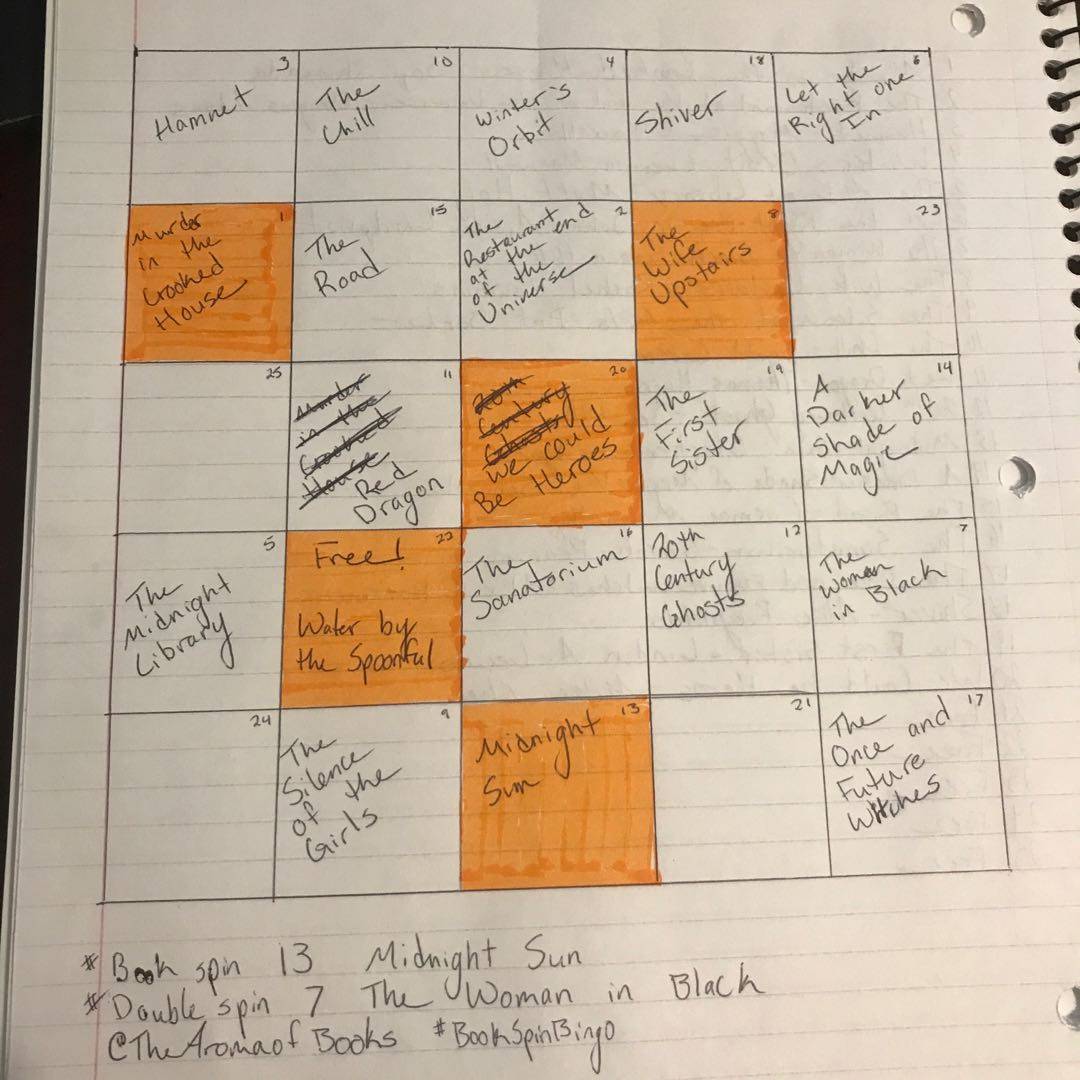 3
Hamnet
10
The
Chill
4
Winter's
Orbit
18
Shiver
6
Let the
Right one
In
1
Murder
in the
Crooked
House
15
The
Road
2
The
Restaurant
at the end
of the
Universe
8
The
Wife
Upstairs
23
25
11
Murder
in the
Crooked
House
Red
Dragon
20
20th
Century
Ghosts
We could
Be Heroes
19
The
First
Sister
14
A
Darker
Shade of
Magic
5
The
Midnight
Library
22
Free!
Water by
the Spoonful
16
The
Sanatorium
12
20th
Century
Ghosts
7
The
Woman
in Black
24
9
The
Silence
of the
Girls
13
Midnight
Sun
21
17
The
Once and
Future
Witches
#Book spin 13 Midnight Sun
#Double spin 7 The Woman in Black
@TheAromaofBooks #BookSpinBingo